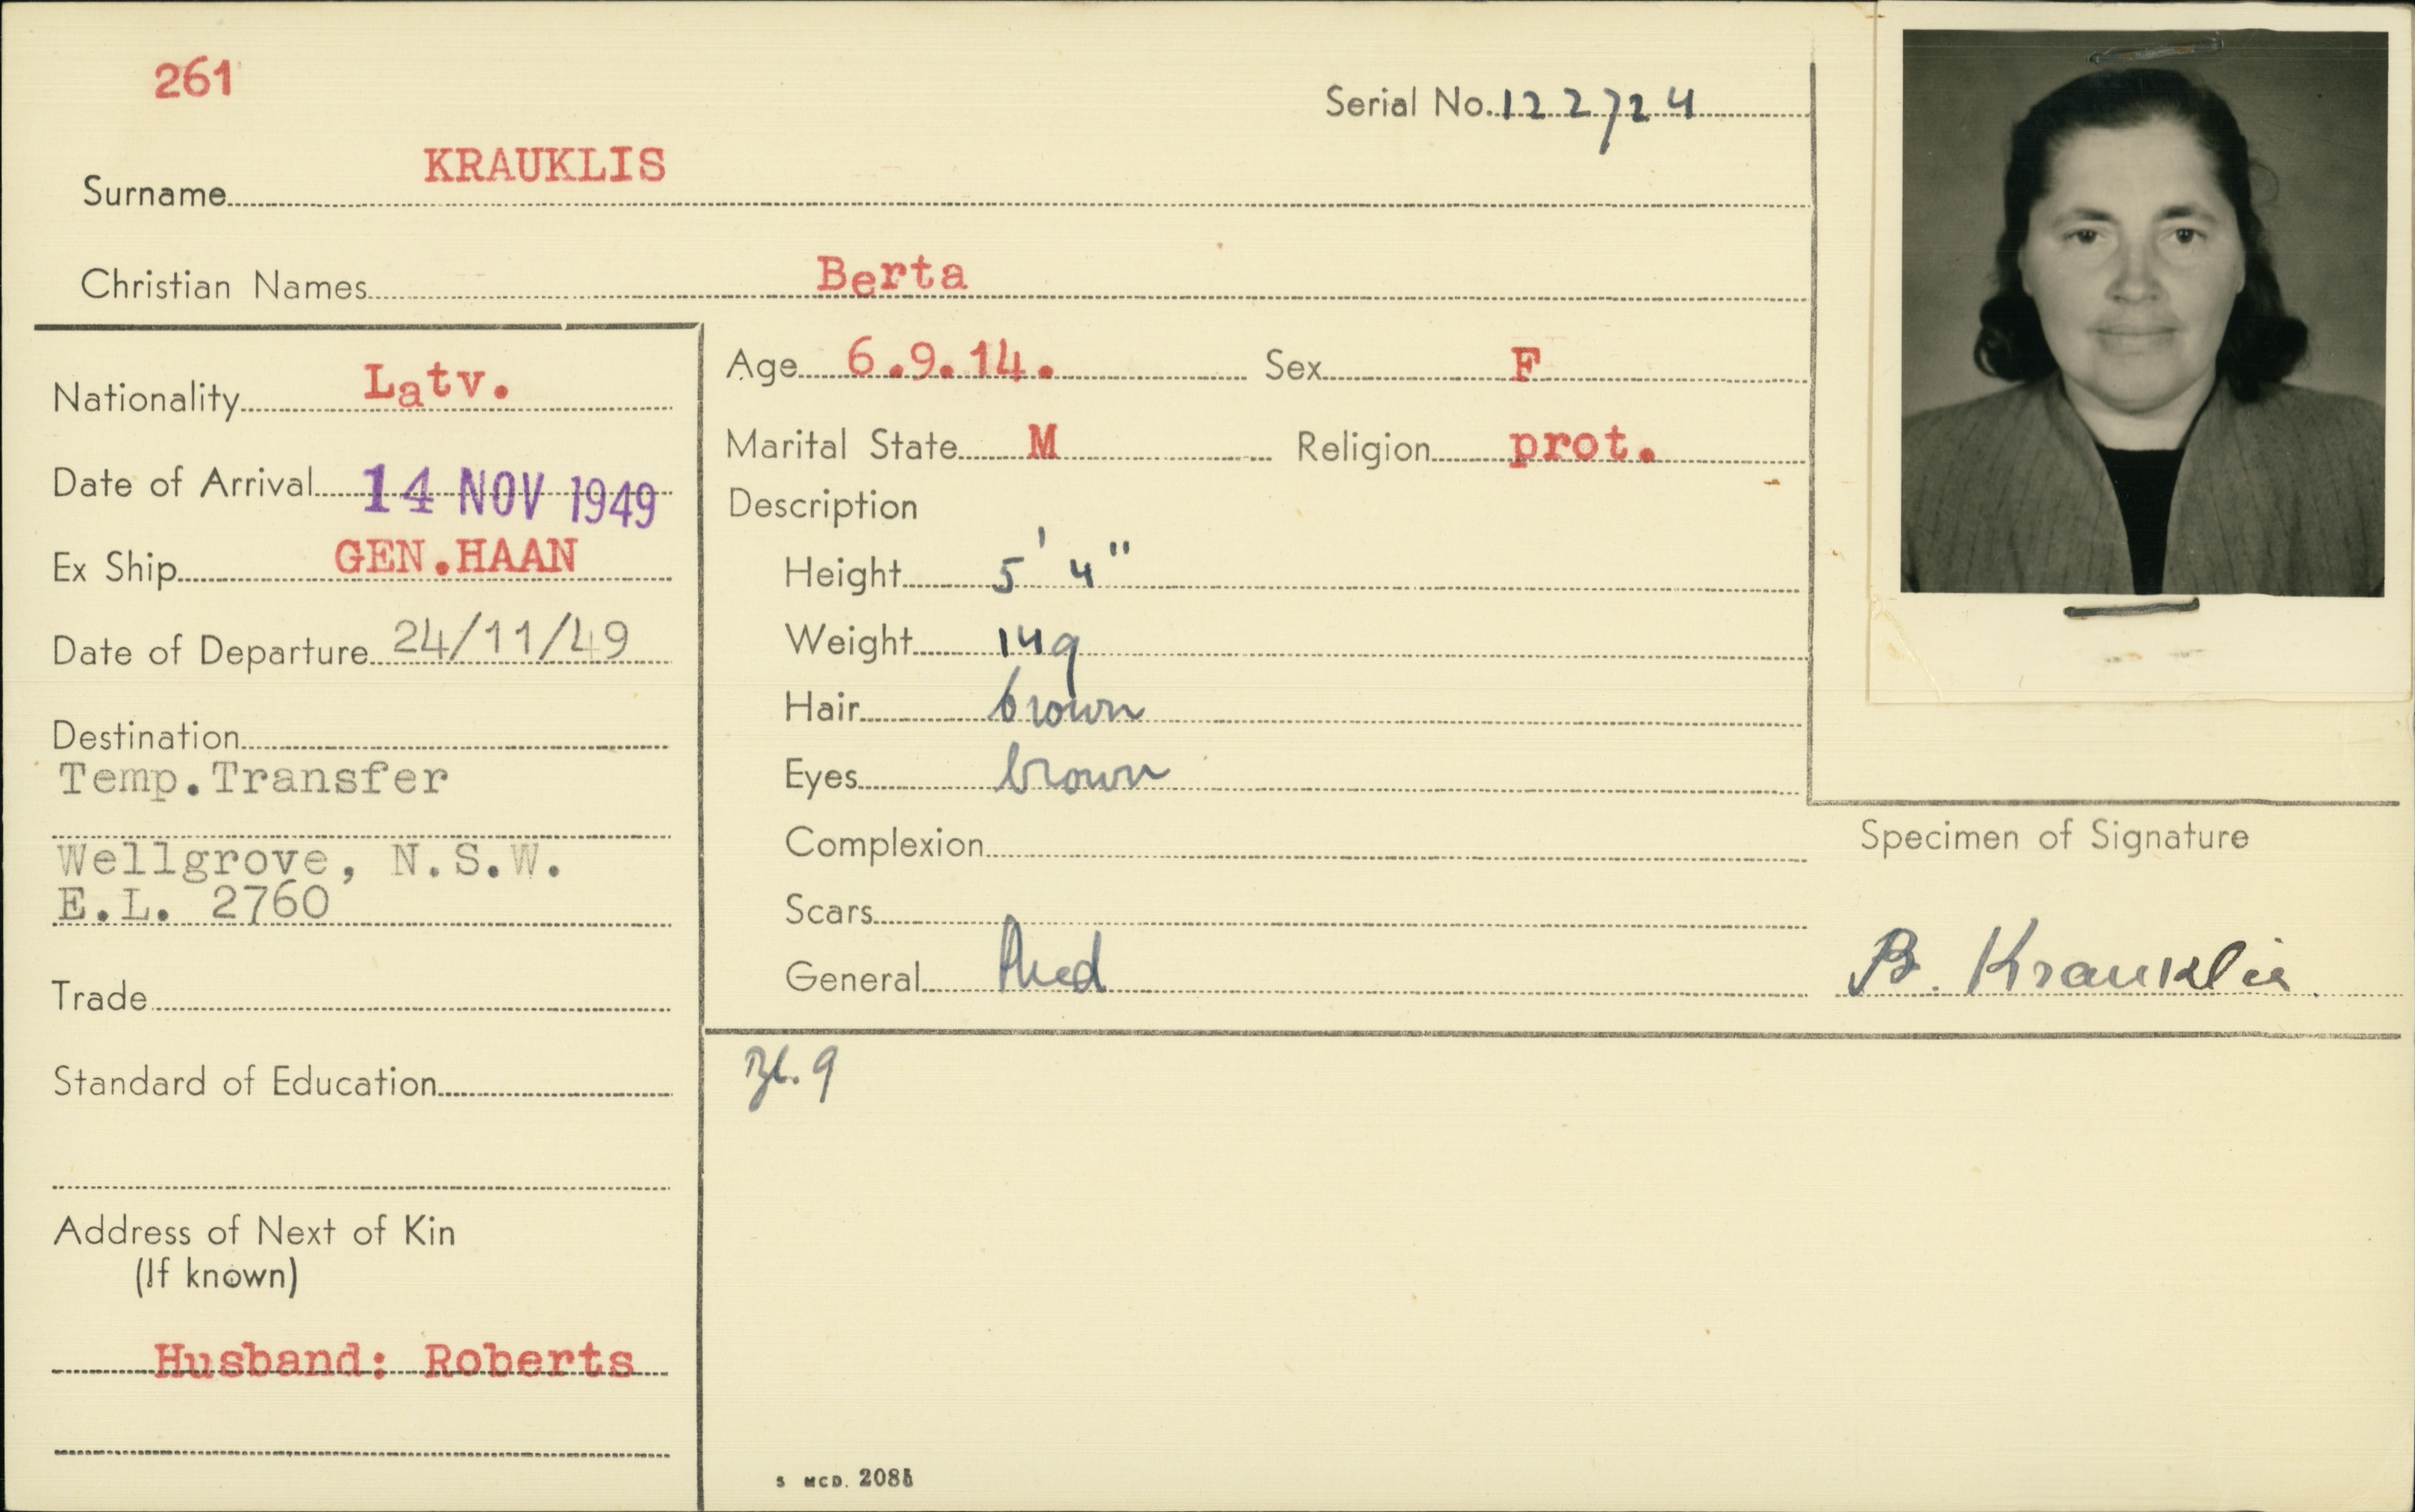 261
Serial No. 122724
Surname KRAUKLIS
Christian Names Berta
Nationality Latv.
Date of Arrival 14 NOV 1949
Ex Ship GEN.HAAN
Date of Departure 24/11/49
Destination
Temp.Transfer
Wellgrove, N.S.W.
E.L. 2760
Trade
Standard of Education
Address of Next of Kin
(If known)
Husband: Roberts
Age 6.9.14. Sex F
Marital State M Religion prot.
Description
Height 5' 4"
Weight 149
Hair brown
Eyes brown
Complexion
Scars
General Med
Bl. 9
S MCD. 2086
Specimen of Signature
B. Krauklis